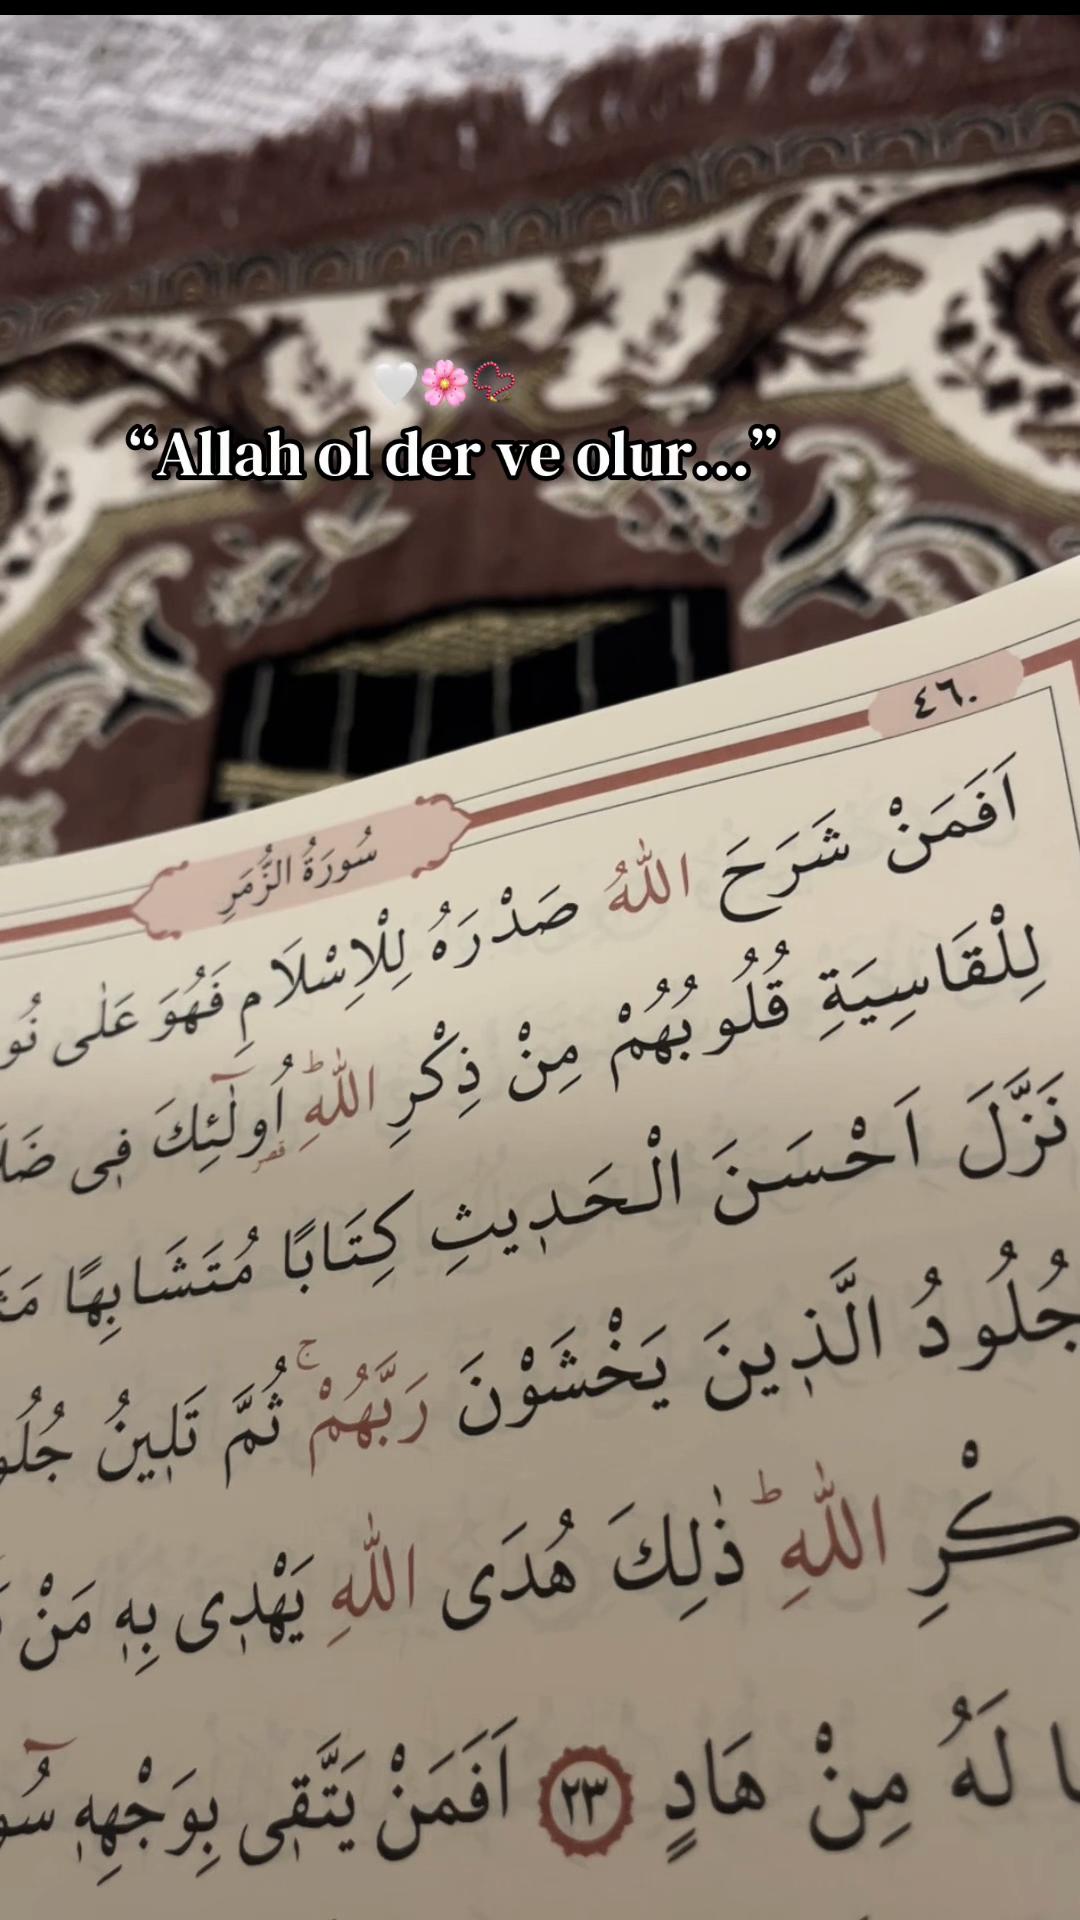 “Allah ol der ve olur...”
٤٦٠
سُورَةُ الزُّمَرِ
اَفَمَنْ شَرَحَ اللّٰهُ صَدْرَهُ لِلْاِسْلَامِ فَهُوَ عَلٰى
لِلْقَاسِيَةِ قُلُوبُهُمْ مِنْ ذِكْرِ اللّٰهِؕ اُو۬لٰٓئِكَ ف۪ى
نَزَّلَ اَحْسَنَ الْحَد۪يثِ كِتَابًا مُتَشَابِهًا
جُلُودُ الَّذ۪ينَ يَخْشَوْنَ رَبَّهُمْۚ ثُمَّ تَل۪ينُ
اللّٰهِؕ ذٰلِكَ هُدَى اللّٰهِ يَهْد۪ى بِه۪ مَنْ
لَهُ مِنْ هَادٍ ٢٣ اَفَمَنْ يَتَّق۪ى بِوَجْهِه۪